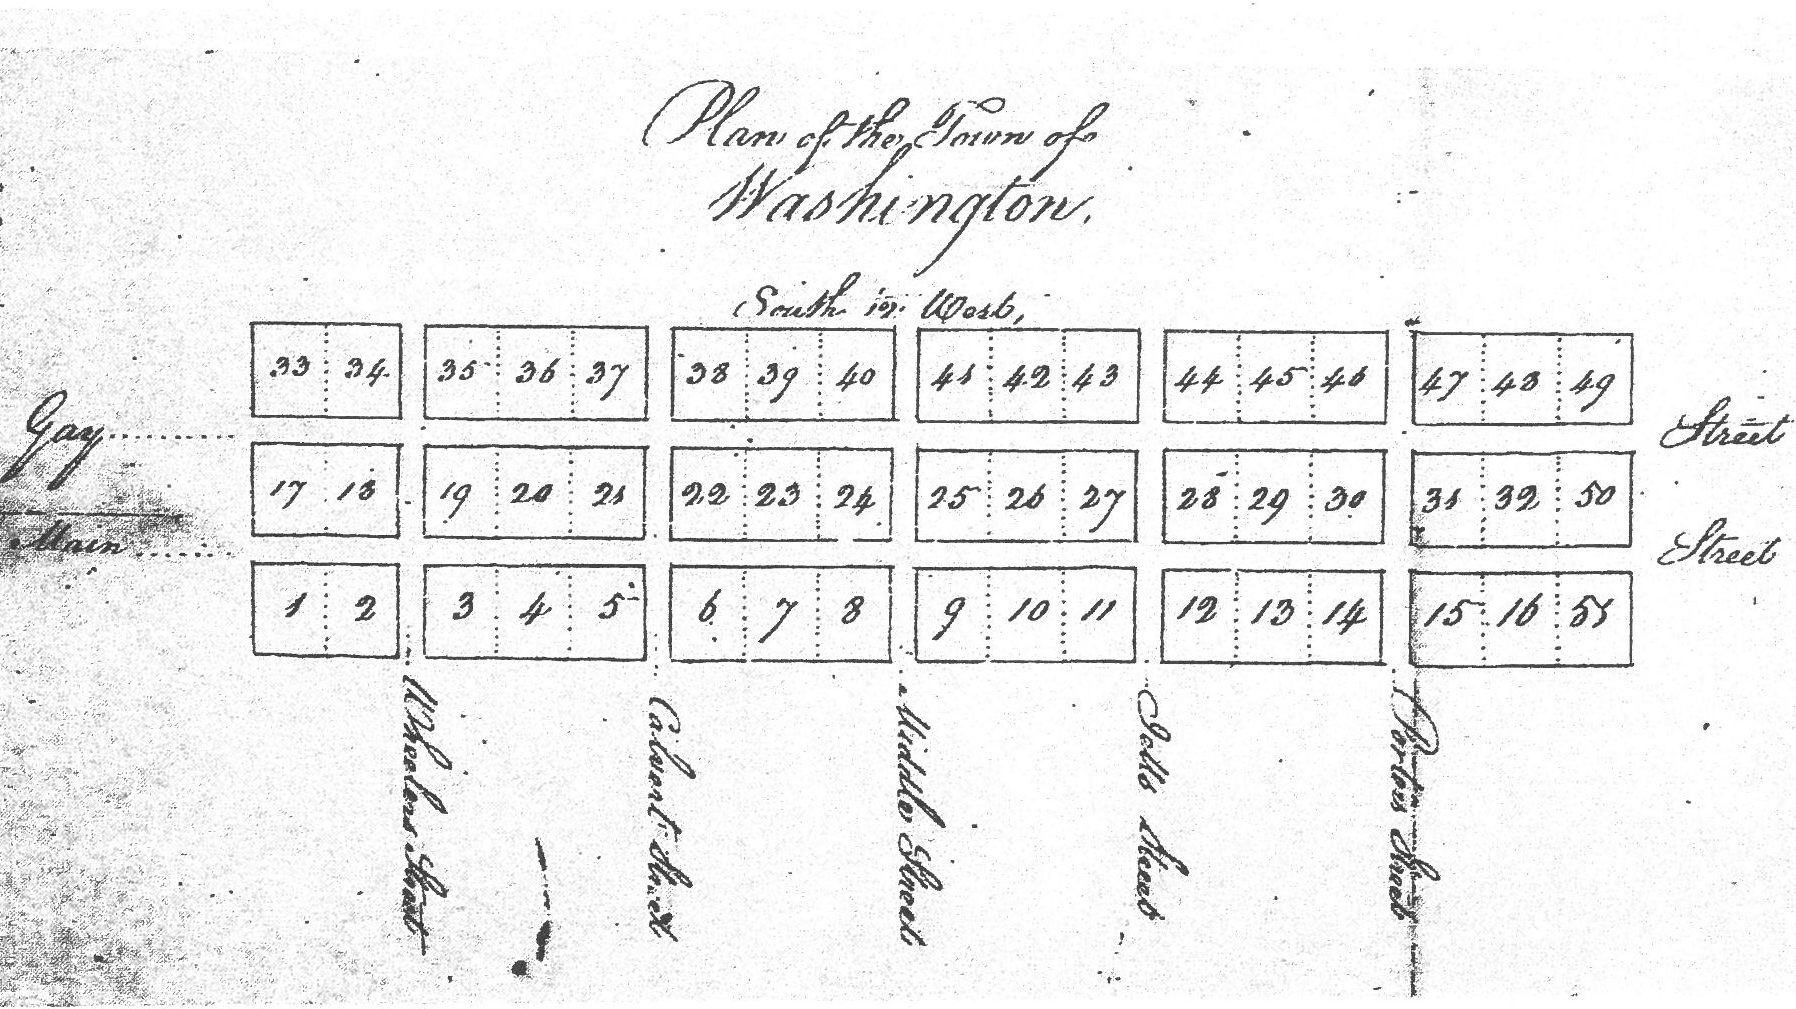 Plan of the Town of
Washington.
South in West,
33 34 35 36 37 38 39 40 41 42 43 44 45 46 47 48 49
Gay Street
17 18 19 20 21 22 23 24 25 26 27 28 29 30 31 32 50
Main Street
1 2 3 4 5 6 7 8 9 10 11 12 13 14 15 16 51
Wheelers Street
Calvert Street
Middle Street
Jetts Street
Porters Street